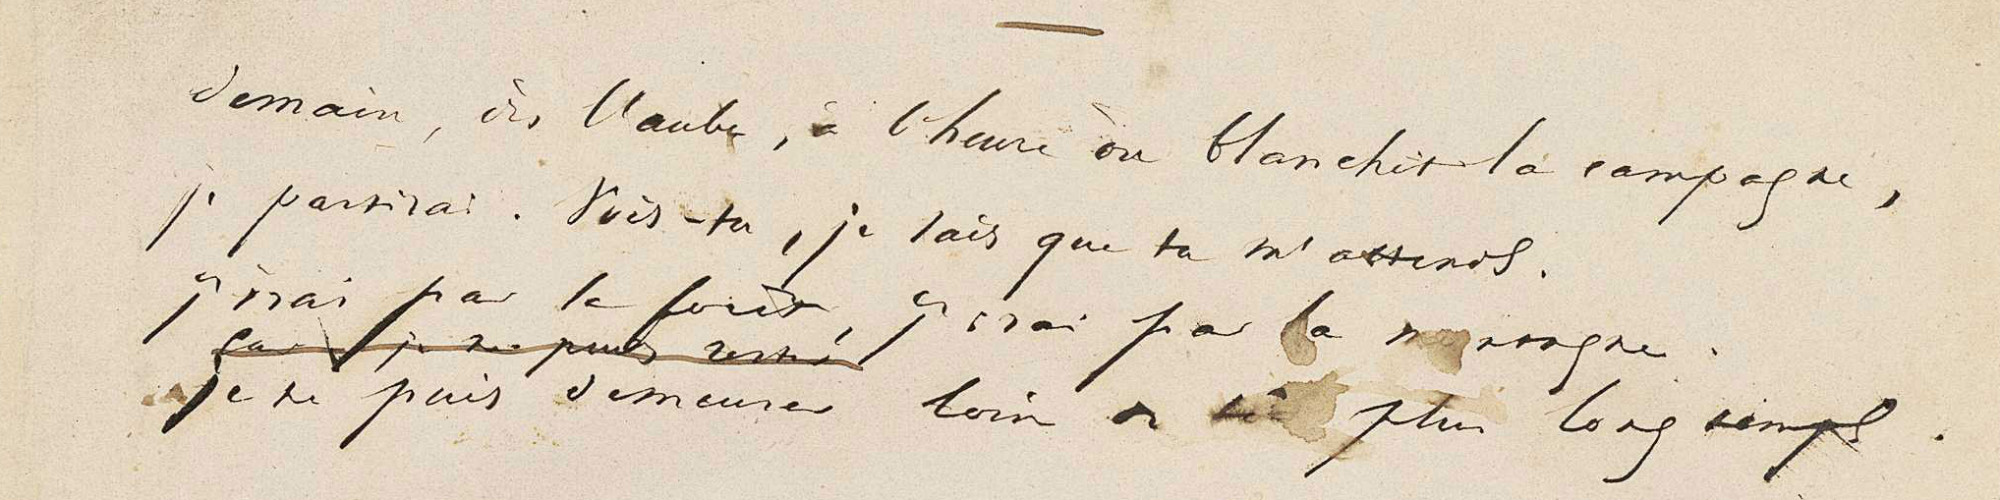 demain, dès l'aube, à l'heure où blanchit la campagne,
je partirai. Vois-tu, je sais que tu m'attends.
j'irai par la forêt, j'irai par la montagne.
car je ne puis rester
je ne puis demeurer loin de toi plus longtemps.